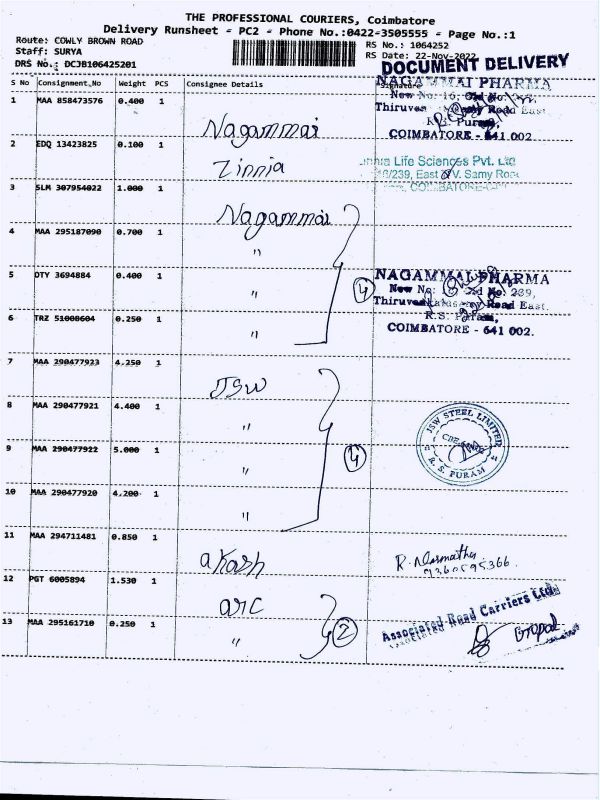 THE PROFESSIONAL COURIERS, Coimbatore
Delivery Runsheet - PC2 - Phone No.:0422-3505555 - Page No.:1
Route: COWLY BROWN ROAD
Staff: SURYA
DRS No.: DCJB106425201
RS No.: 1064252
RS Date: 22-Nov-2022
DOCUMENT DELIVERY
S No Consignment No Weight PCS Consignee Details Signature
NAGAMMAI PHARMA
New No. 16, Old No.
Thiruven Samy Road East,
R.S. Puram,
COIMBATORE - 641 002
1 MAA 858473576 0.400 1 Nagammai
2 EDQ 13423825 0.100 1 Zinnia
Life Sciences Pvt. Ltd
/239, East V. Samy Road
COIMBATORE
3 SLM 307954022 1.000 1 Nagammai
4 MAA 295187090 0.700 1 "
5 DTY 3694884 0.400 1 " 4
NAGAMMAI PHARMA
New No. Old No. 239,
Road East.
R.S. Puram,
COIMBATORE - 641 002.
6 TRZ 51008604 0.250 1 "
7 MAA 290477923 4.250 1 JSW
8 MAA 290477921 4.400 1 "
JSW STEEL LIMITED
R. S. PURAM
9 MAA 290477922 5.000 1 " 4
10 MAA 290477920 4.200 1 "
11 MAA 294711481 0.850 1 akash
R.
12 PGT 6005894 1.530 1 arc
Associated Road Carriers Ltd.
13 MAA 295161710 0.250 1 " 2
Gopal